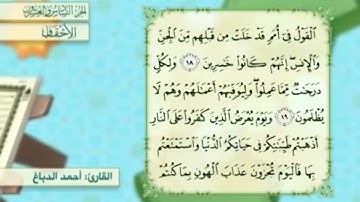 الجزء السادس والعشرون
الأحقاف
الْقَوْلُ فِي أُمَمٍ قَدْ خَلَتْ مِن قَبْلِهِم مِّنَ الْجِنِّ
وَالْإِنسِ إِنَّهُمْ كَانُوا خَاسِرِينَ ١٨ وَلِكُلٍّ
دَرَجَاتٌ مِّمَّا عَمِلُوا وَلِيُوَفِّيَهُمْ أَعْمَالَهُمْ وَهُمْ لَا
يُظْلَمُونَ ١٩ وَيَوْمَ يُعْرَضُ الَّذِينَ كَفَرُوا عَلَى النَّارِ
أَذْهَبْتُمْ طَيِّبَاتِكُمْ فِي حَيَاتِكُمُ الدُّنْيَا وَاسْتَمْتَعْتُم
بِهَا فَالْيَوْمَ تُجْزَوْنَ عَذَابَ الْهُونِ بِمَا كُنتُمْ
القارئ: أحمد الدباغ